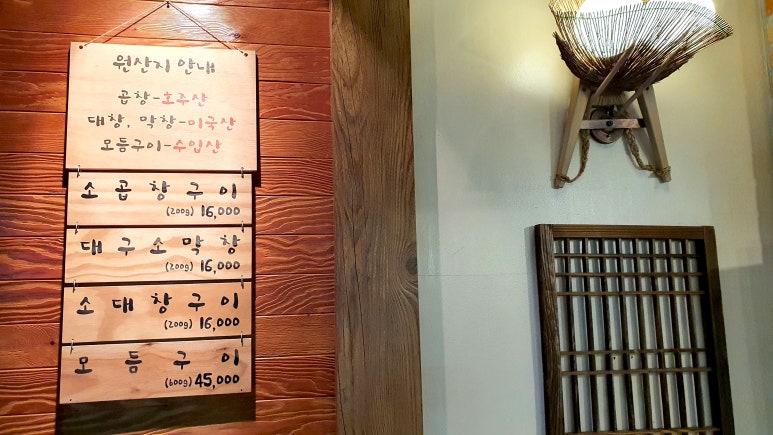 원산지 안내
곱창-호주산
대창, 막창-미국산
모듬구이-수입산
소곱창구이
(200g) 16,000
대구소막창
(200g) 16,000
소대창구이
(200g) 16,000
모듬구이
(600g) 45,000